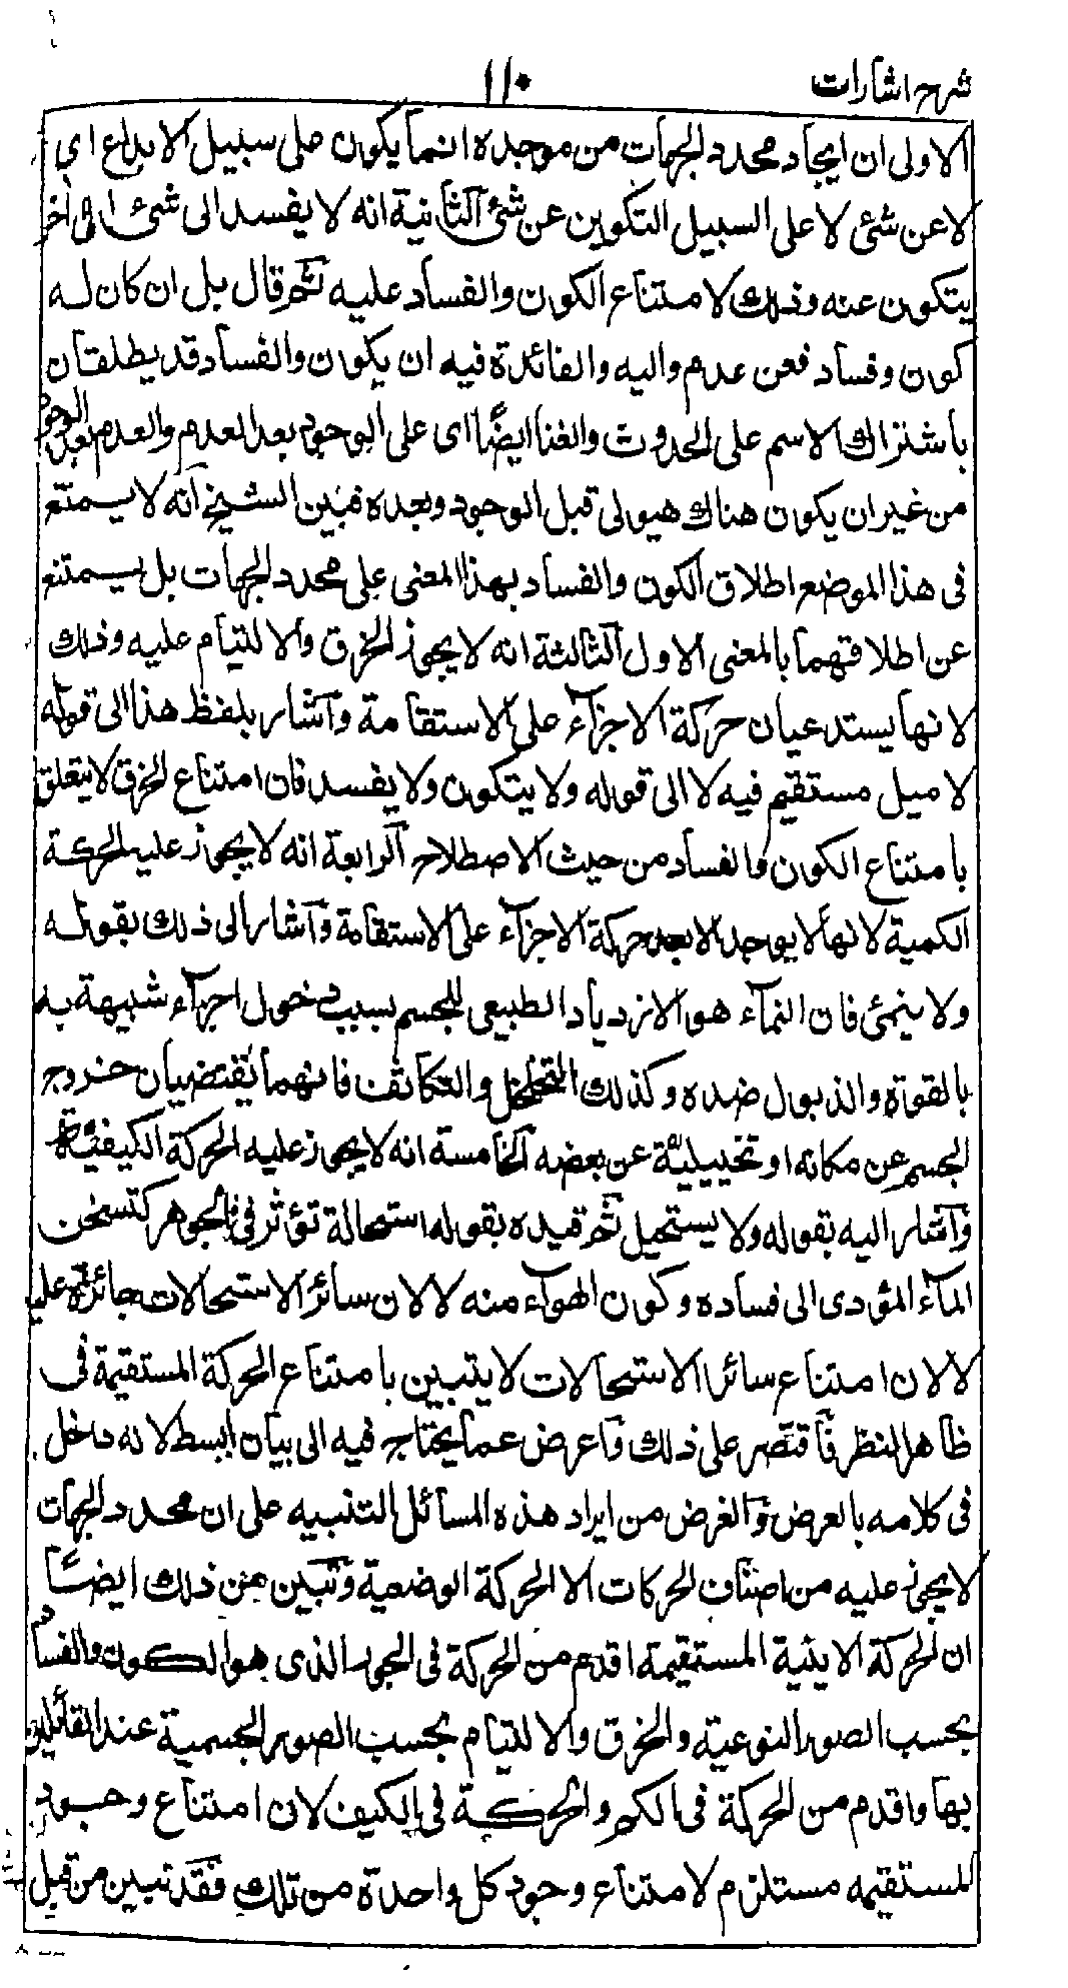 شرح اشارات ١١٠
الاولى ان ايجاد محدد الجهات من موجده انما يكون على سبيل الابداع اى
لا عن شئ لا على السبيل التكوين عن شئ الثانية انه لا يفسد الى شئ اخر
يتكون عنه وذلك لامتناع الكون والفساد عليه ثم قال بل ان كان له
كون وفساد فعن عدم واليه والفائدة فيه ان يكون والفساد قد يطلقان
باشتراك الاسم على الحدوث والفنا ايضًا اى على الوجود بعد العدم والعدم بعد الوجود
من غير ان يكون هناك هيولى قبل الوجود وبعده فبين الشيخ انه لا يمتنع
فى هذا الموضع اطلاق الكون والفساد بهذا المعنى على محدد الجهات بل يمتنع
عن اطلاقهما بالمعنى الاول الثالثة انه لا يجوز الخرق والالتيام عليه وذلك
لانها يستدعيان حركة الاجزآء على الاستقامة واشار بلفظ هذا الى قوله
لا ميل مستقيم فيه لا الى قوله ولا يتكون ولا يفسد فان امتناع الخرق لا يتعلق
بامتناع الكون والفساد من حيث الاصطلاح الرابعة انه لا يجوز عليه الحركة
الكمية لانها لا يوجد الا بعد حركة الاجزآء على الاستقامة واشار الى ذلك بقوله
ولا ينمى فان النمآء هو الازدياد الطبيعى للجسم بسبب دخول اجزآء شبيهة به
بالقوة والذبول ضده وكذلك التخلخل والتكاثف فانهما يقتضيان خروج
الجسم عن مكانه او تخييلية عن بعضه الخامسة انه لا يجوز عليه الحركة الكيفية
واشار اليه بقوله ولا يستحيل ثم قيده بقوله استحالة تؤثر فى الجوهر كتسخن
المآء المؤدى الى فساده وكون الهوآء منه لا لان سائر الاستحالات جائزة عليه
لا لان امتناع سائر الاستحالات لا يتبين بامتناع الحركة المستقيمة فى
ظاهر النظر فاقتصر على ذلك واعرض عما يحتاج فيه الى بيان ابسط لانه داخل
فى كلامه بالعرض والغرض من ايراد هذه المسائل التنبيه على ان محدد الجهات
لا يجوز عليه من اصناف الحركات الا الحركة الوضعية وتبين من ذلك ايضًا
ان الحركة الاينية المستقيمة اقدم من الحركة فى الجوهر الذى هو الكون والفساد
بحسب الصور النوعية والخرق والالتيام بحسب الصور الجسمية عند القائلين
بها واقدم من الحركة فى الكم والحركة فى الكيف لان امتناع وجود
المستقيمه مستلزم لامتناع وجود كل واحدة من تلك فقد تبين من قبل